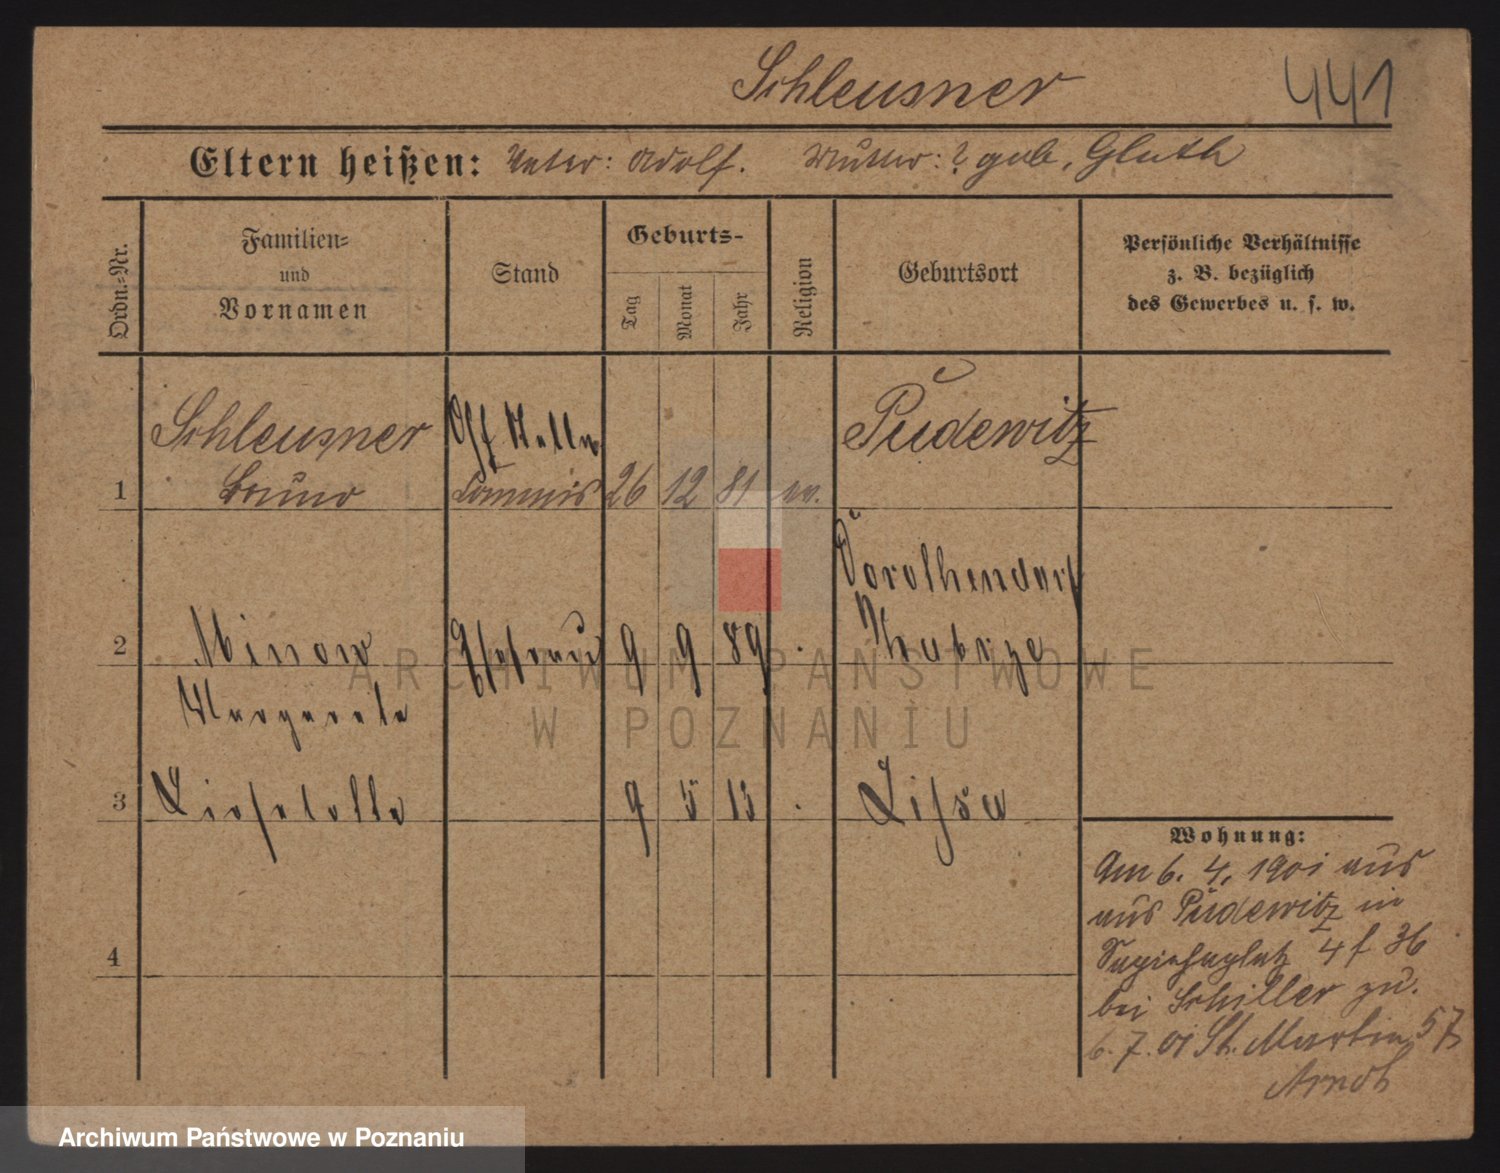 Schleusner
441
Eltern heißen: Vater: Adolf. Mutter: ? geb. Gluth
Ordn.-Nr.
Familien-
und
Vornamen
Stand
Geburts-
Tag
Monat
Jahr
Religion
Geburtsort
Persönliche Verhältnisse
z. B. bezüglich
des Gewerbes u. s. w.
1
Schleusner
Bruno
Commis
26 12 81 ev.
Pudewitz
2
Minow
Margarete
Ehefrau
9 9 89
Dorotheendorf
Zabrze
3
Lieselotte
9 5 13
Lissa
4
Wohnung:
Am 6. 4. 1901 aus
aus Pudewitz in
Sapiehaplatz 4 f 36
bei Schiller zu.
6. 7. 01 St. Martin 57
Arndt
ARCHIWUM PAŃSTWOWE
W POZNANIU
Archiwum Państwowe w Poznaniu